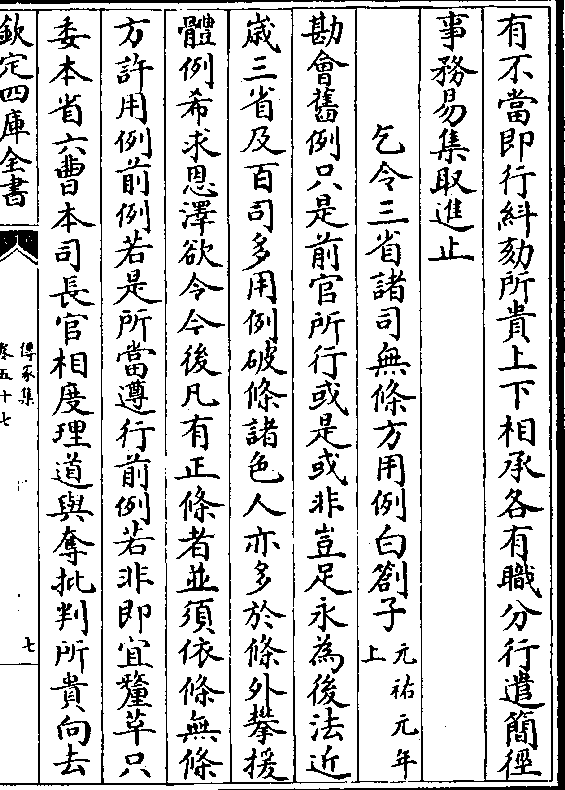 有不當即行糾劾所貴上下相承各有職分行遣簡徑
事務易集取進止
乞令三省諸司無條方用例白劄子元祐元年上
勘會舊例只是前官所行或是或非豈足永為後法近
歲三省及百司多用例破條諸色人亦多於條外攀援
體例希求恩澤欲令今後凡有正條者並須依條無條
方許用例前例若是所當遵行前例若非即宜釐革只
委本省六曹本司長官相度理道與奪批判所貴向去
欽定四庫全書
傳家集
卷五十七
七